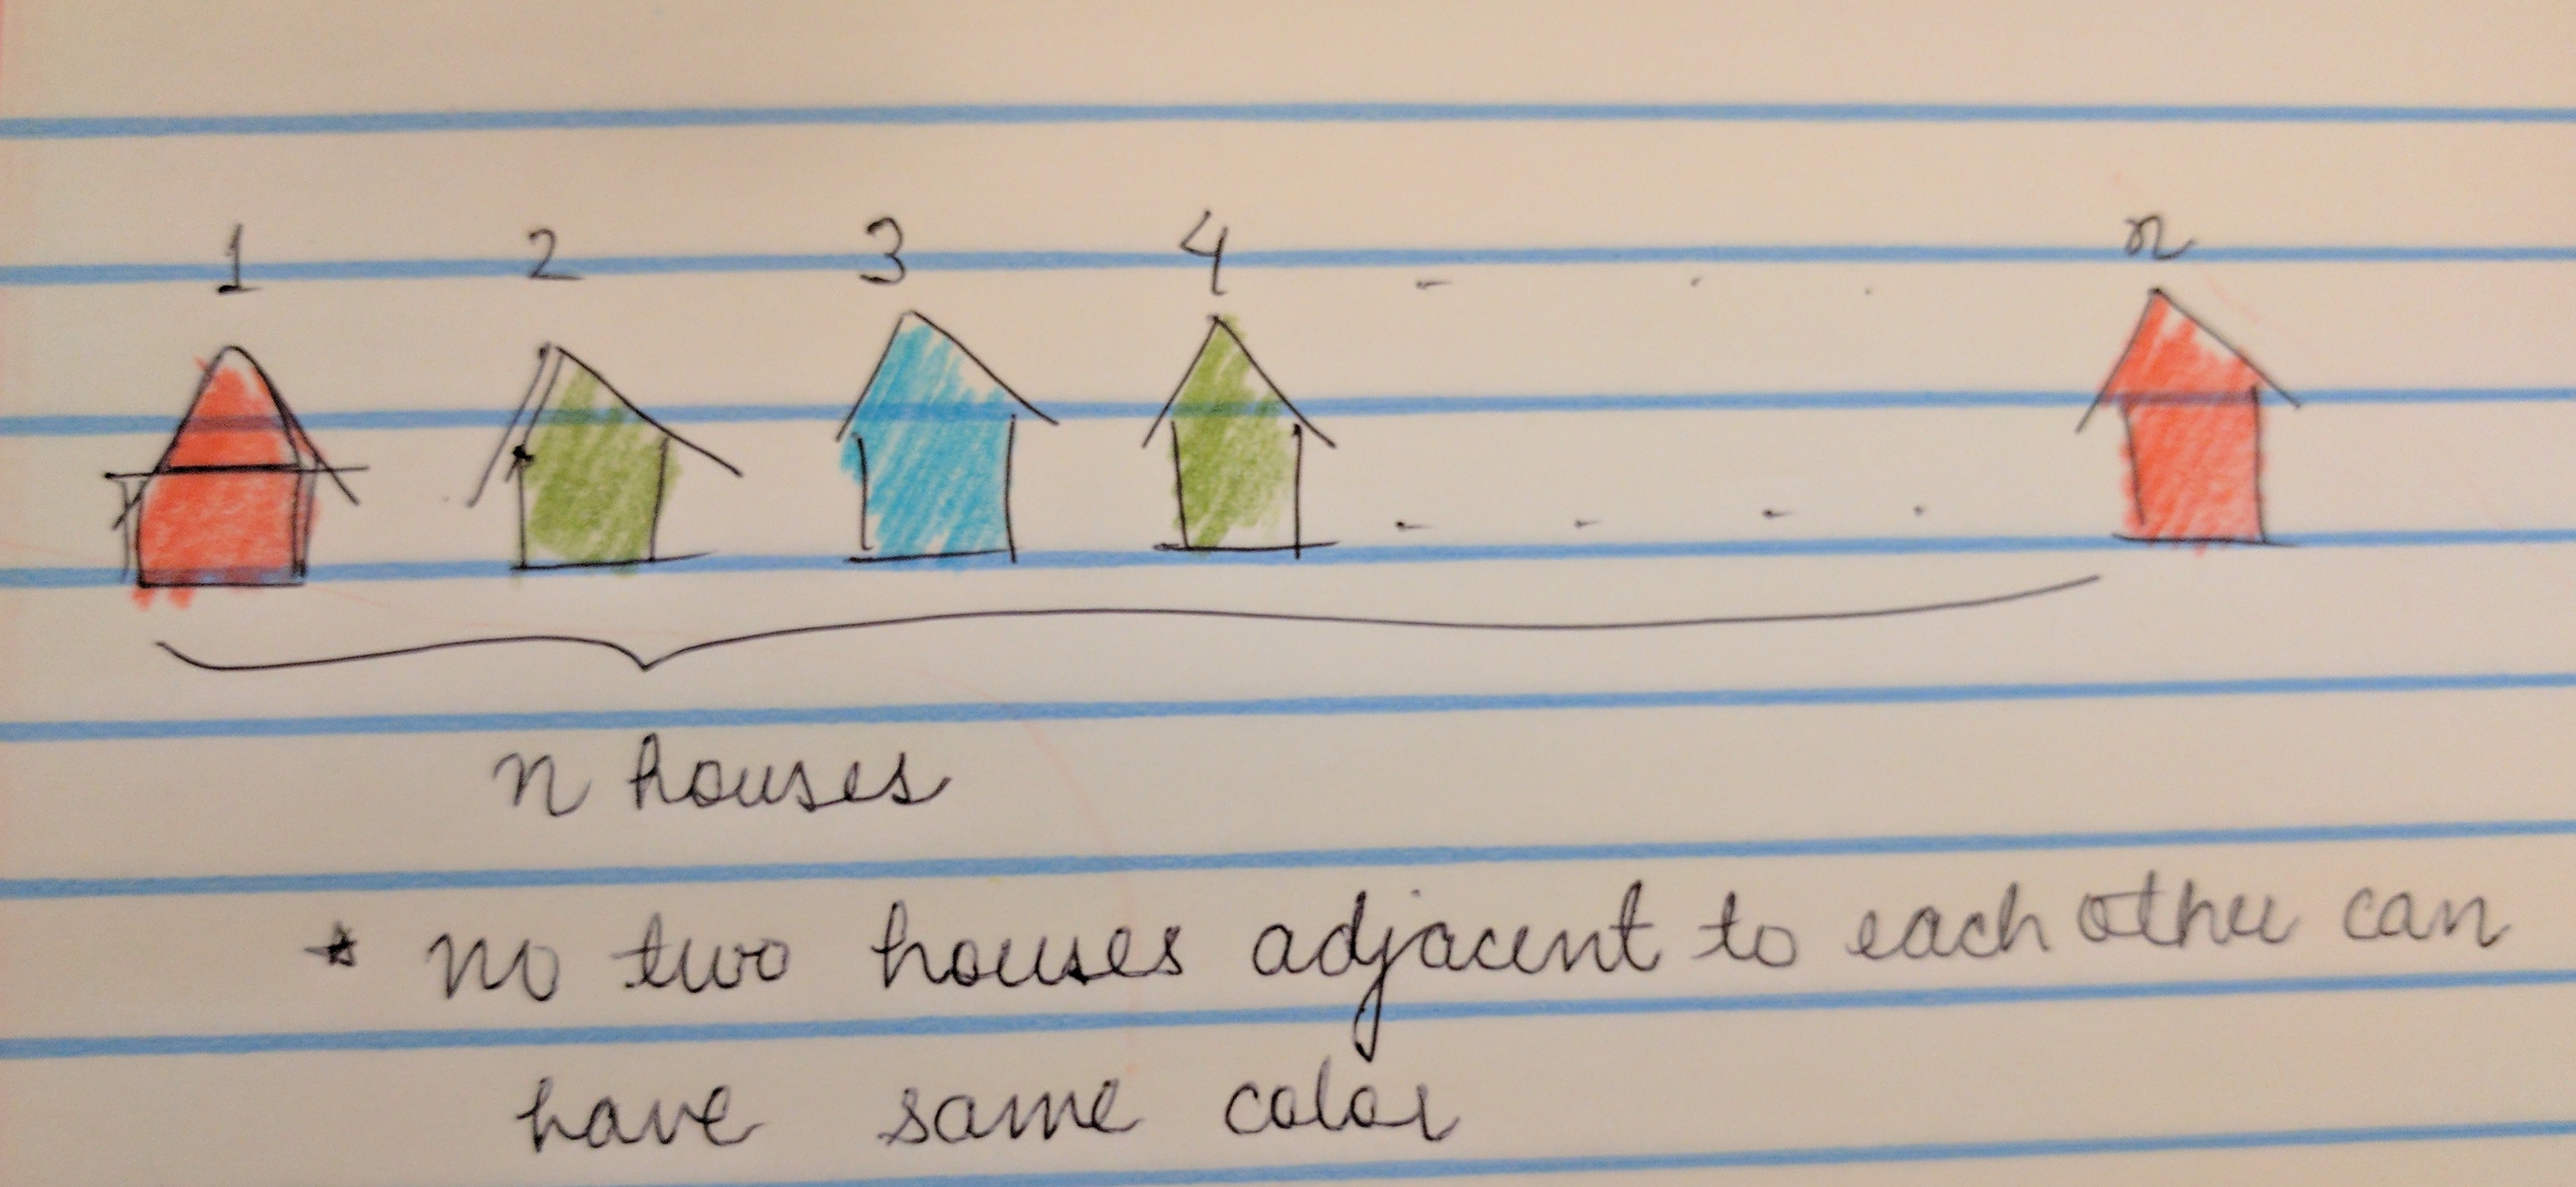 1 2 3 4 - . . n
n houses
* no two houses adjacent to each other can
have same color